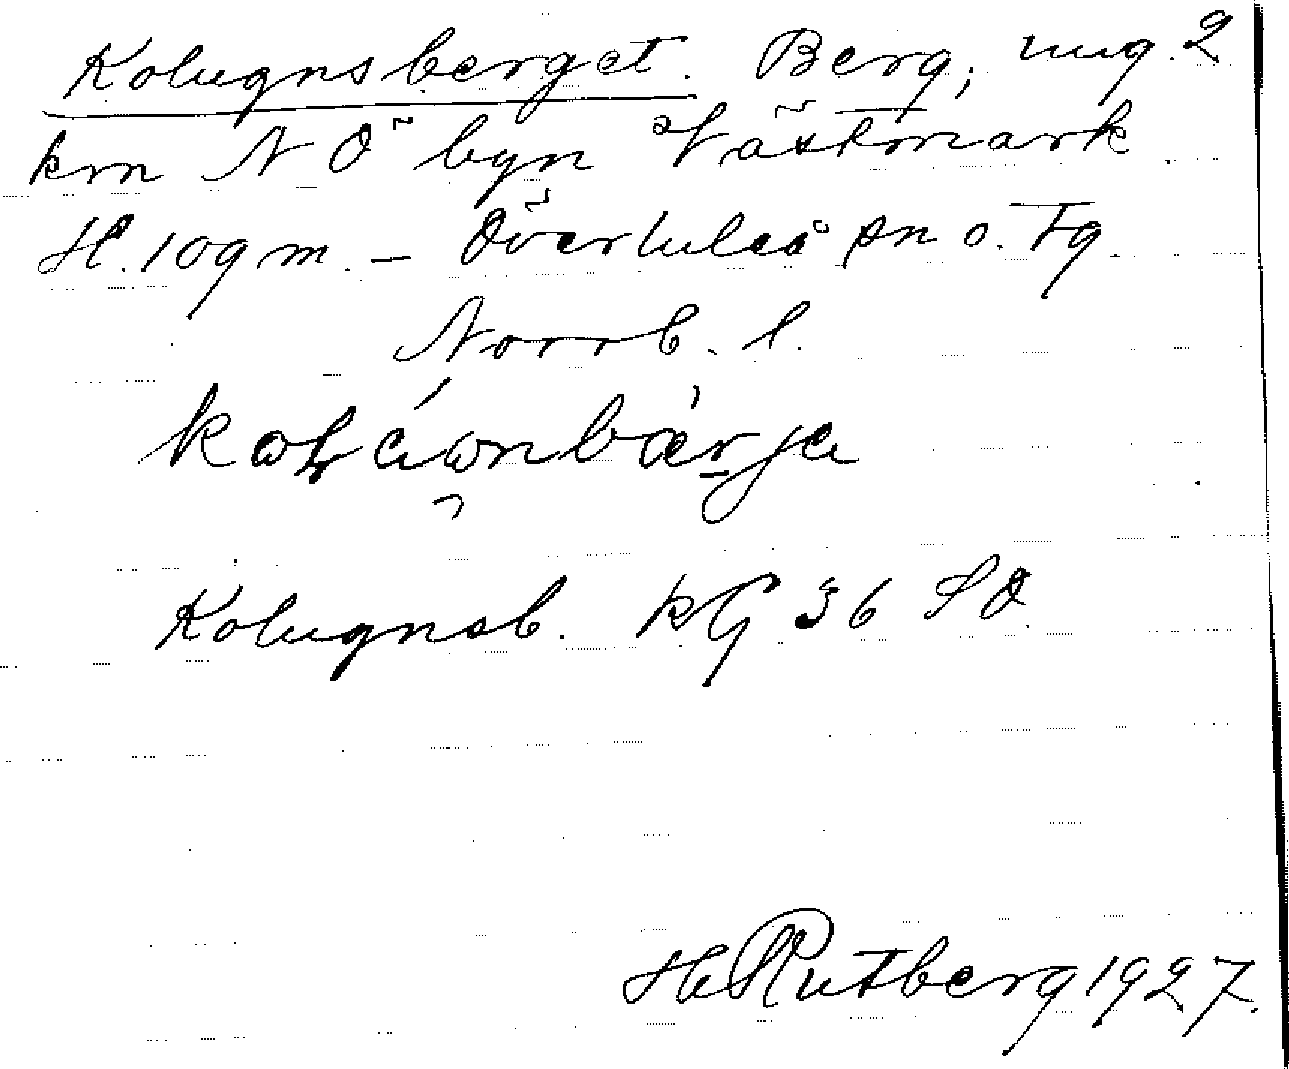 Kolugnsberget. Berg, ung. 2
km NÖ byn Västmark.
H. 109 m. – Överluleå sn o. Tg.
Norrb. l.
Kolugnsb. KG 36 SO
H Rutberg 1927.